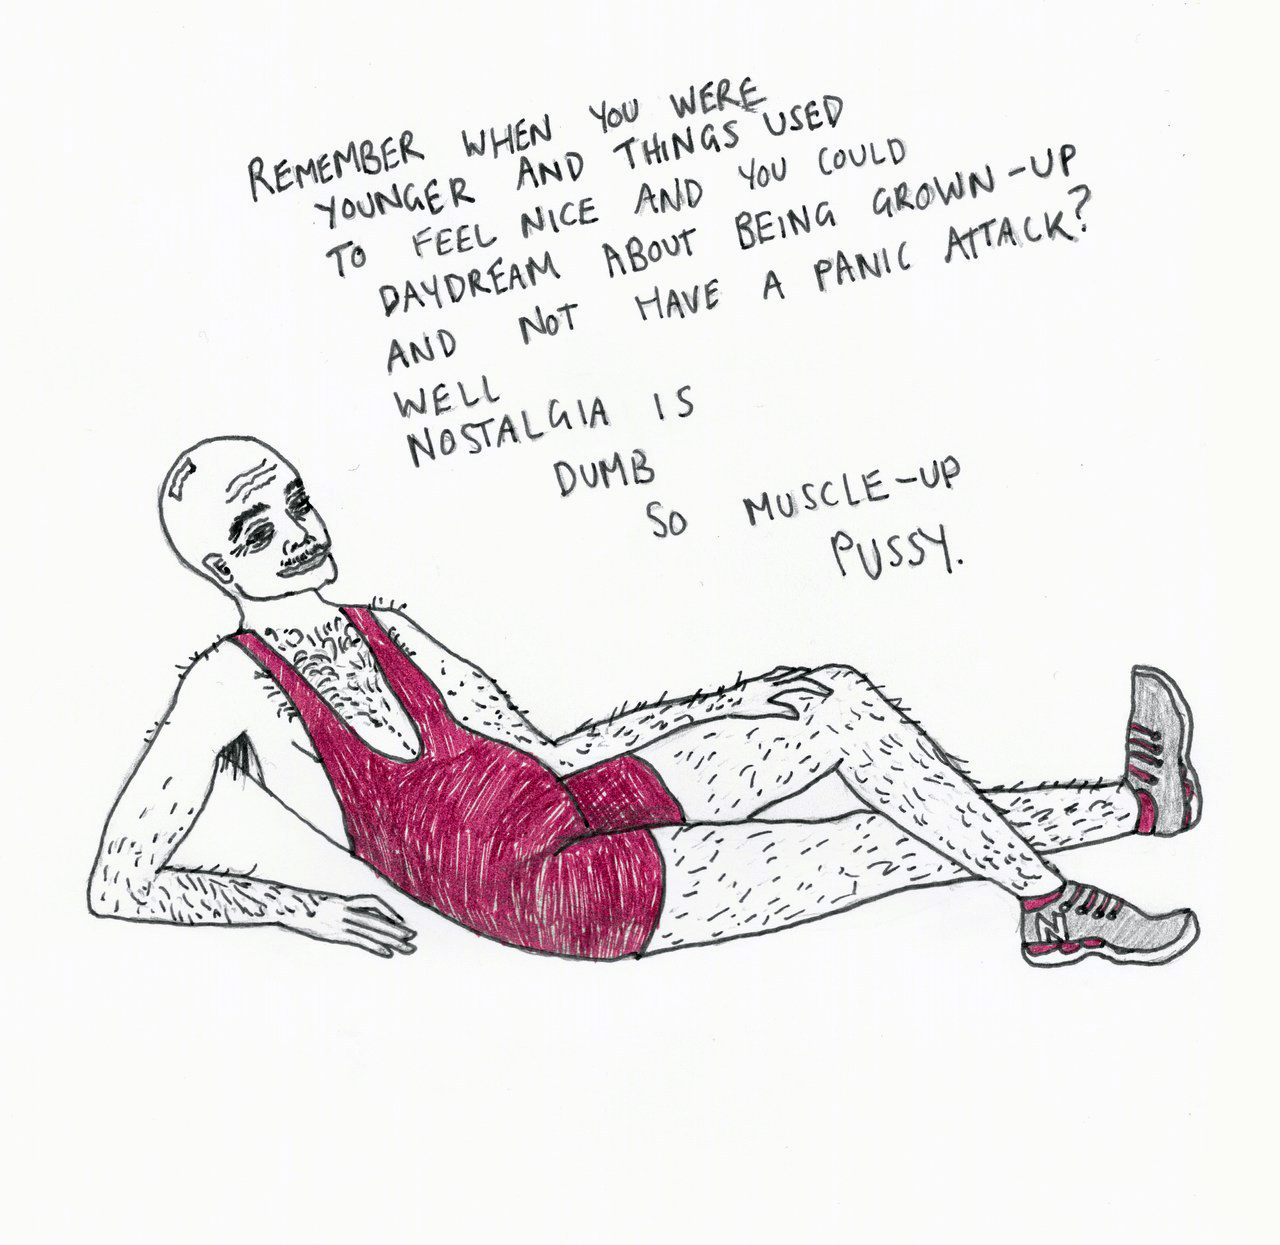 REMEMBER WHEN YOU WERE
YOUNGER AND THINGS USED
TO FEEL NICE AND YOU COULD
DAYDREAM ABOUT BEING GROWN-UP
AND NOT HAVE A PANIC ATTACK?
WELL
NOSTALGIA IS
DUMB
SO MUSCLE-UP
PUSSY.
N